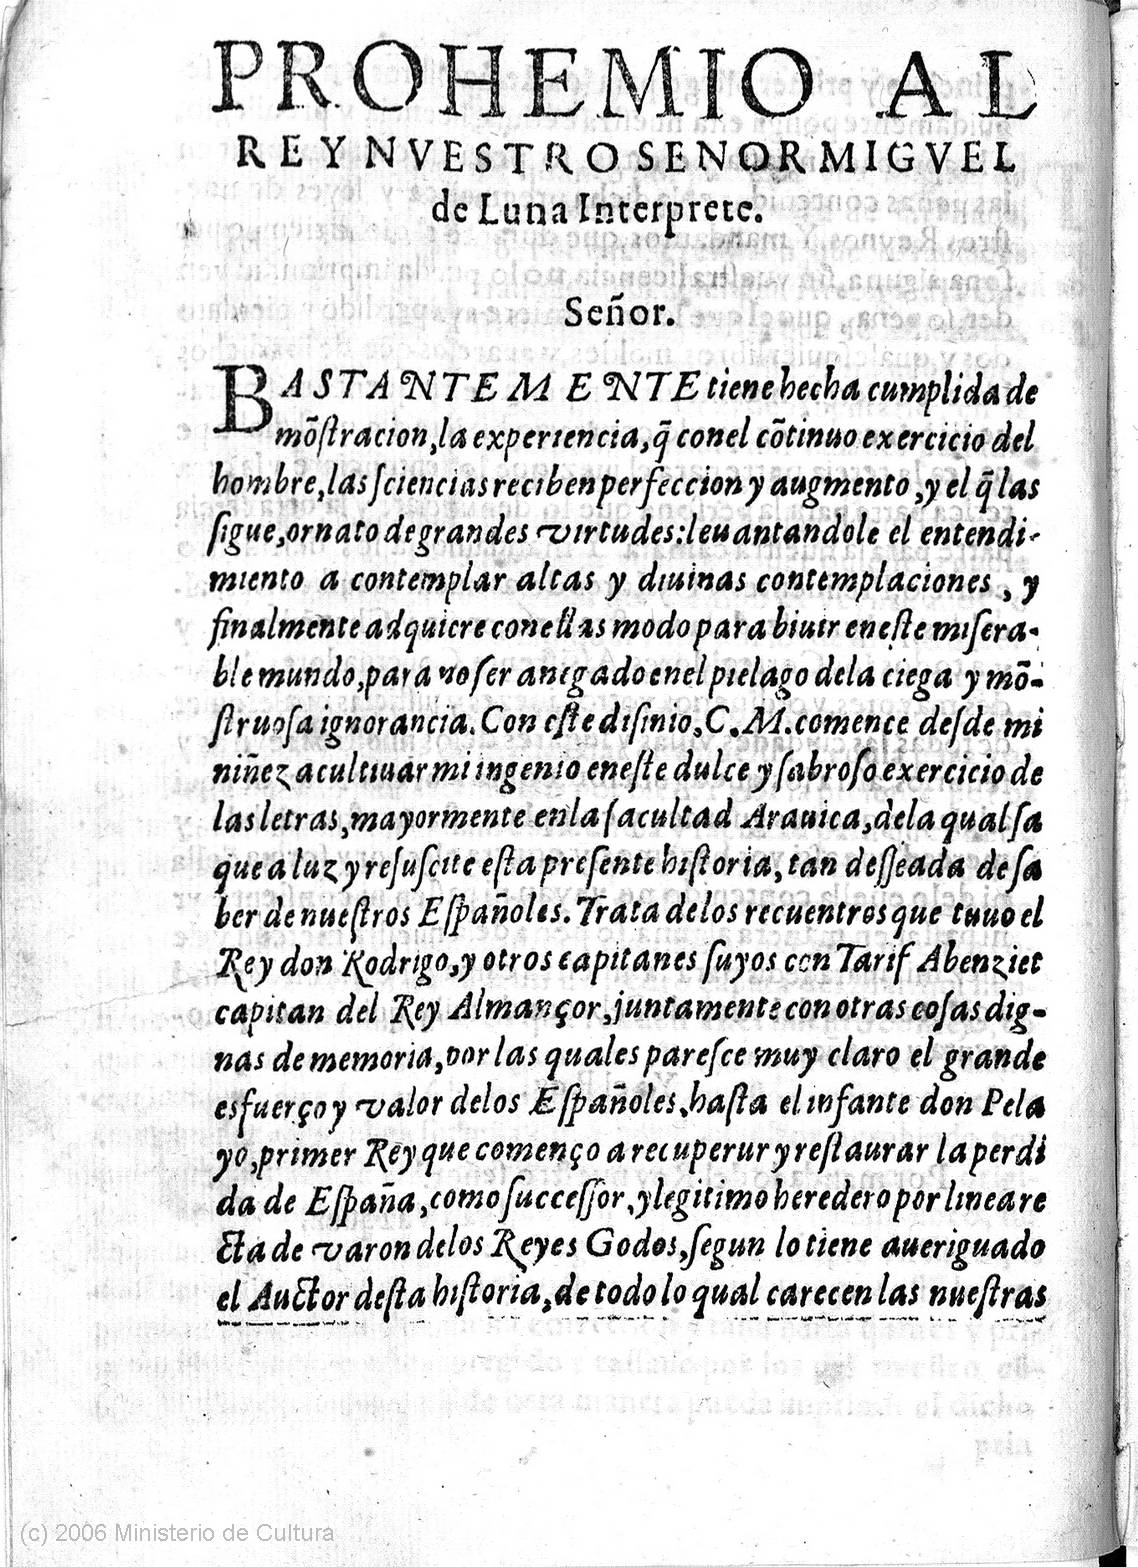 PROHEMIO AL
REY NVESTRO SENOR MIGVEL
de Luna Interprete.
Señor.
BASTANTEMENTE tiene hecha cumplida de
mõſtracion, la experiencia, q̃ conel cõtinuo exercicio del
hombre, las ſciencias reciben perfeccion y augmento, y el q̃ las
ſigue, ornato de grandes virtudes: leuantandole el entendi-
miento a contemplar altas y diuinas contemplaciones, y
finalmente adquiere conellas modo para biuir eneſte miſera-
ble mundo, para no ſer anegado enel pielago dela ciega y mõ-
ſtruoſa ignorancia. Con eſte diſinio, C. M. comence deſde mi
niñez a cultiuar mi ingenio eneſte dulce y ſabroſo exercicio de
las letras, mayormente enla facultad Arauica, dela qual ſa
que a luz y reſuſcite eſta preſente hiſtoria, tan deſſeada de ſa
ber de nueſtros Eſpañoles. Trata delos recuentros que tuuo el
Rey don Rodrigo, y otros capitanes ſuyos con Tarif Abenziet
capitan del Rey Almançor, juntamente con otras coſas dig-
nas de memoria, por las quales pareſce muy claro el grande
esfuerço y valor delos Eſpañoles, haſta el infante don Pela
yo, primer Rey que començo a recuperur y reſtaurar la perdi
da de Eſpaña, como ſucceſſor, y legitimo heredero por linea re
cta de varon delos Reyes Godos, ſegun lo tiene aueriguado
el Auctor deſta hiſtoria, de todo lo qual carecen las nueſtras
(c) 2006 Ministerio de Cultura